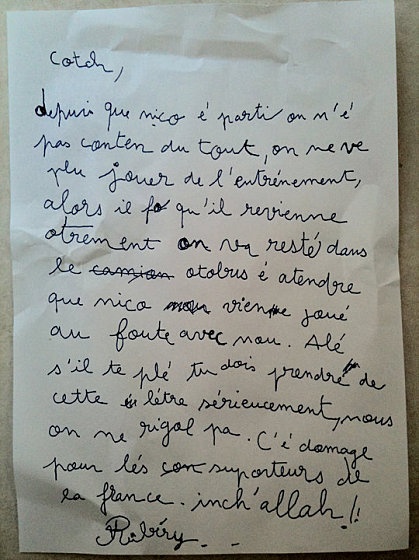 cotch,
depuis que nico é parti on n'é
pas conten du tout, on ne ve
plu jouer de l'entrénement,
alors il fo qu'il revienne
otrement on va resté dans
le camion otobus é atendre
que nico vienne joué
au foute avec nou. Alé
s'il te plé tu dois prendre de
cette létre sérieucement, nous
on ne rigol pa. C'é domage
pour lés con suporteurs de
la france. inch'allah!!
Ribéry